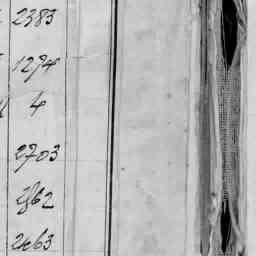 2383
1274
4
2703
2762
2463